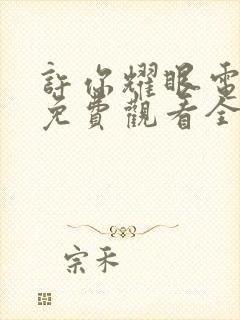 許你耀眼電
免費觀看全
宗禾